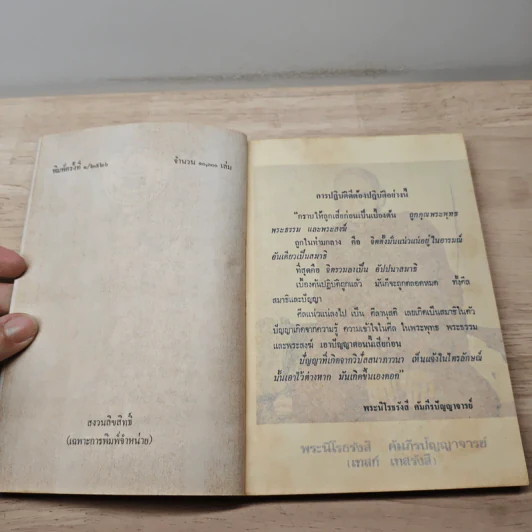 พิมพ์ครั้งที่ ๑/๒๕๒๖
จำนวน ๑๐,๐๐๐ เล่ม
สงวนลิขสิทธิ์
(เฉพาะการพิมพ์จำหน่าย)
การปฏิบัติต้องปฏิบัติอย่างนี้
"กราบให้ถูกเสียก่อนเป็นเบื้องต้น ถูกคุณพระพุทธ
พระธรรม และพระสงฆ์
ถูกในท่ามกลาง คือ จิตตั้งมั่นแน่วแน่อยู่ในอารมณ์
อันเดียวเป็นสมาธิ
ที่สุดคือ จิตรวมลงเป็น อัปปนาสมาธิ
เบื้องต้นปฏิบัติถูกแล้ว มันก็จะถูกตลอดหมด ทั้งศีล
สมาธิและปัญญา
ศีลแน่วแน่ลงไป เป็น ศีลานุสติ เลยเกิดเป็นสมาธิในตัว
ปัญญาเกิดจากความรู้ ความเข้าใจในศีล ในพระพุทธ พระธรรม
และพระสงฆ์ เอาปัญญาตอนนี้เสียก่อน
ปัญญาที่เกิดจากวิปัสสนาภาวนา เห็นแจ้งในไตรลักษณ์
นั้นเอาไว้ต่างหาก มันเกิดขึ้นเองดอก"
พระนิโรธรังสี คัมภีรปัญญาจารย์
พระนิโรธรังสี คัมภีรปัญญาจารย์
(เทสก์ เทสรังสี)